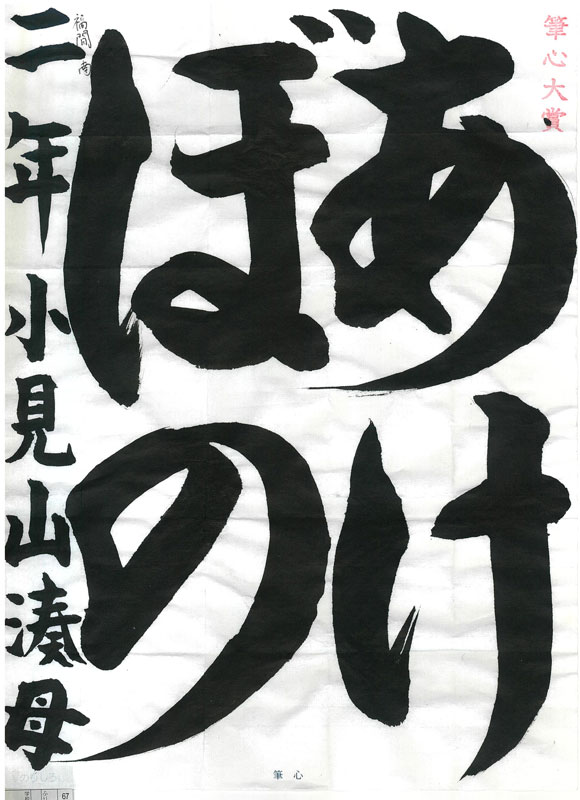 筆心大賞
あけ
ぼの
福間南
二年 小見山湊母
筆心
67